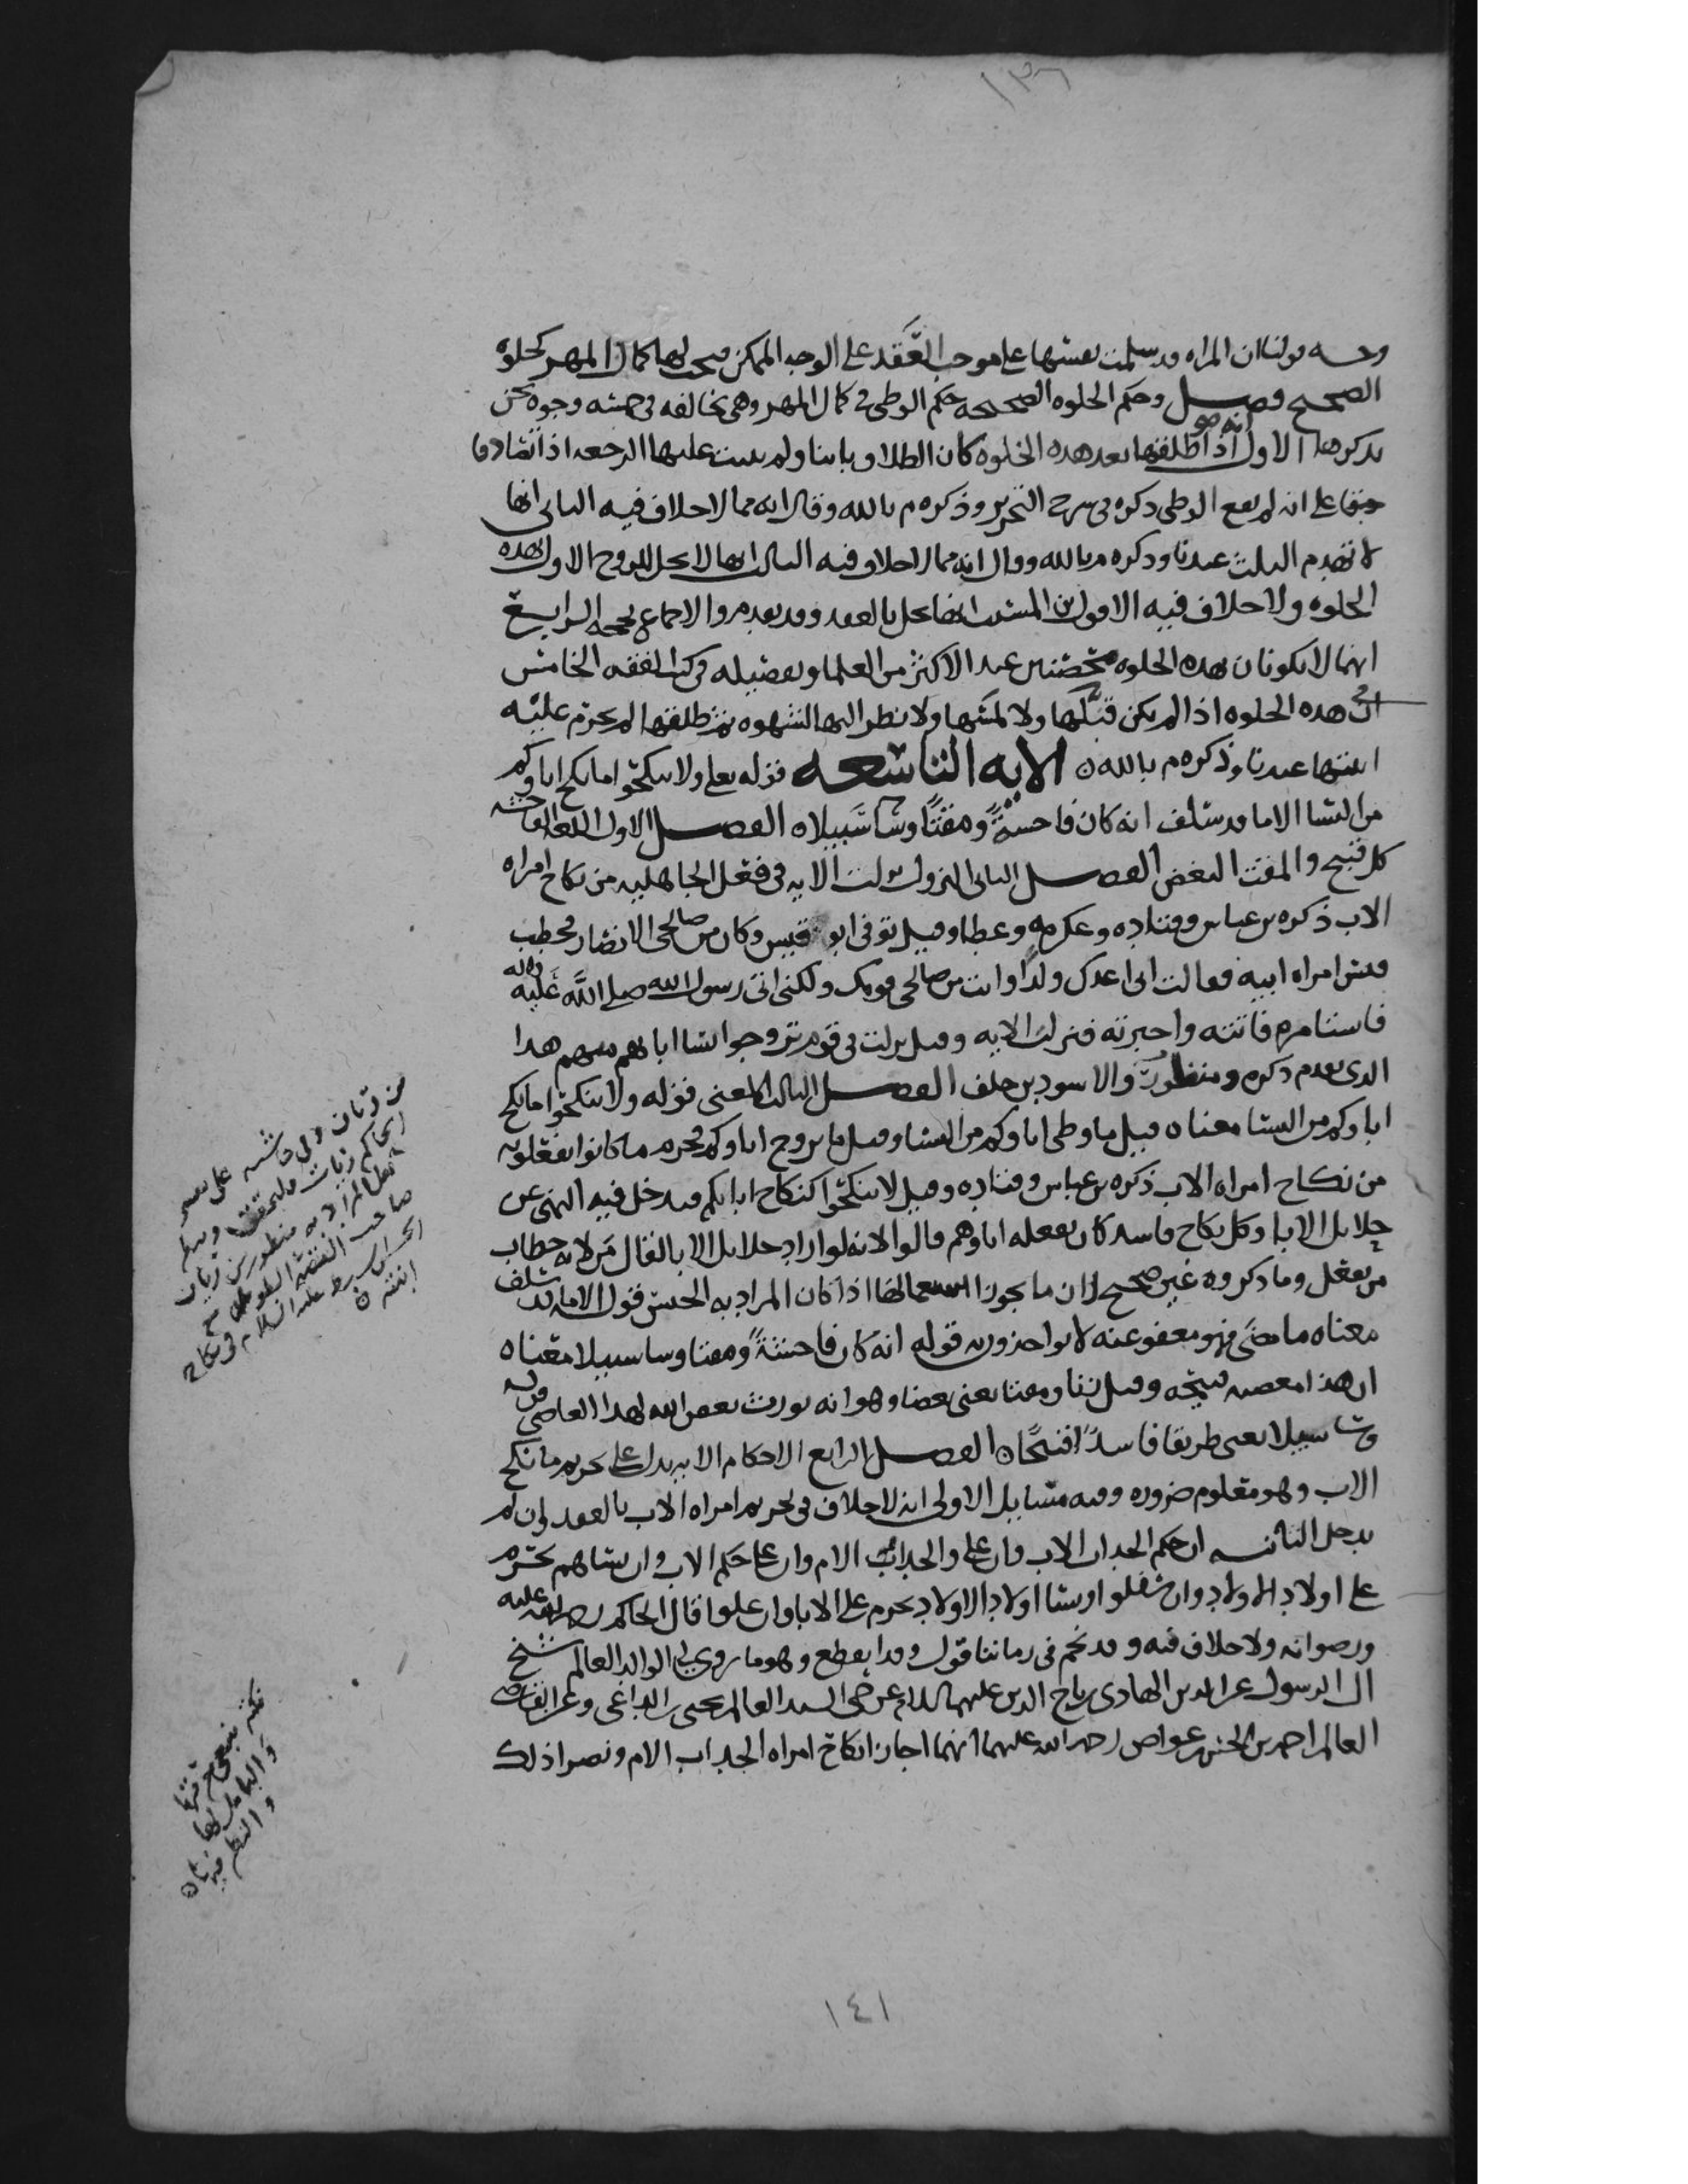 ١٣٦
وجه قولنا ان المراه قد سلمت نفسها على موجب العقد على الوجه الممكن فيجب لها كمال المهر كخلوة
الصحيح فصل وحكم الخلوه الصحيحه حكم الوطى في كمال المهر وهي تخالفه في خمسه وجوه نحن
نذكرها الاول انه اذا طلقها بعد هذه الخلوه كان الطلاق باينا ولم يثبت عليها الرجعه اذا تصادقا
جميعا على انه لم يقع الوطى ذكره في شرح التحرير وذكره م بالله وقال انه مما لا خلاف فيه الثاني انها
لا تهدم الثلث عندنا وذكره م بالله وقال انه مما لا خلاف فيه الثالث انها لا تحل للزوج الاول بهذه
الخلوه ولا خلاف فيه الا قول بن المسيب انها تحل بالعقد وقد تقدم والاجماع يحجه الرابع
انهما لا يكونان بهذه الخلوه محصنين عند الاكثر من العلما وتفصيله في كتب الفقه الخامس
ان في هذه الخلوه اذا لم يكن قبلها ولا لمسها ولا نظر اليها لشهوه ثم طلقها لم تحرم عليه
ابنتها عندنا وذكره م بالله ن الايه التاسعه قوله تعلى ولا تنكحوا ما نكح اباوكم
من النسا الا ما قد سلف انه كان فاحشةً ومقتًا وسا سبيلا ن الفصل الاول اللغه الفاحشه
كل قبيح والمقت البغض الفصل الثاني النزول نزلت الايه في فعل الجاهليه من نكاح امراه
الاب ذكره بن عباس وقتاده وعكرمه وعطا وقيل توفى ابو قيس وكان من صالحي الانصار فخطب
قيس امراه ابيه فقالت اني اعدك ولدا وانت من صالحي قومك ولكني اتي رسول الله صلى الله عليه واله
فاستامره فاتته واخبرته فنزلت الايه وقيل نزلت في قوم تزوجوا نسا ابايهم منهم هذا
الذي تقدم ذكره ومنظور والاسود بن خلف الفصل الثالث المعنى قوله ولا تنكحوا ما نكح
اباوكم من النسا معناه قيل ما وطى اباوكم من النسا وقيل ما تزوج اباوكم فحرم ما كانوا يفعلونه
من نكاح امراه الاب ذكره بن عباس وقتاده وقيل لا تنكحوا كنكاح ابايكم فيدخل فيه النهي عن
حلايل الابا وكل نكاح فاسد كان يفعله اباوهم قالوا لانه لو اراد حلايل الابا لقال من لانه خطاب
من يعقل وما ذكروه غير صحيح لان ما يجوز استعمالها اذا كان المراد به الجنس قوله الا ما قد سلف
معناه ما مضى فهو معفو عنه لا تواخذون به قوله انه كان فاحشةً ومقتا وسا سبيلا معناه
ان هذا معصيه قبيحه وقيل زنا ومقتا يعني بغضا وهو انه يورث بغض الله لهذا العاصي قوله
وسا سبيلا يعني طريقا فاسدًا قبيحًا ن الفصل الرابع الاحكام الايه تدل على تحريم ما نكح
الاب وهو معلوم ضروره وفيه مسايل الاولى انه لا خلاف في تحريم امراه الاب بالعقد وان لم
يدخل الثانيه ان حكم الجد اب الاب وان على والجد اب الام وان علا حكم الاب وان نساهم تحرم
على اولاد الاولاد وان سفلوا ونسا اولاد الاولاد تحرم على الابا وان علوا قال الحاكم رحمه الله عليه
ورضوانه ولا خلاف فيه وقد نجم في زماننا قول وقد انقطع وهو ما روى لي الوالد العالم شيخ
ال الرسول عز الدين الهادي بن تاج الدين عليهما السلام عن حي السيد العالم يحيى بن الداعي وعن القاضي
العالم احمد بن الحسن بن عواض رحمه الله عليهما انهما اجازا نكاح امراه الجد اب الام ونصرا ذلك
١٤١